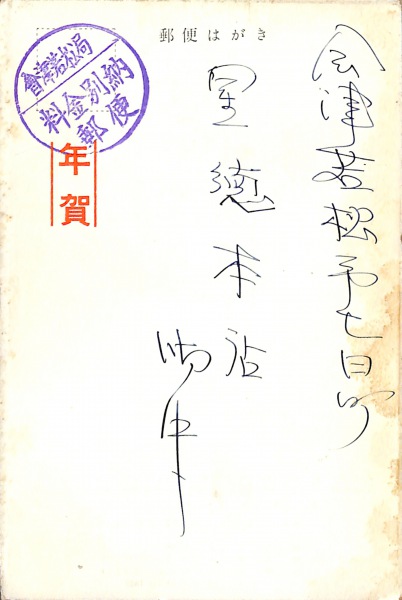 郵便はがき
會津若松局
料金別納
郵便
年賀
会津若松市七日町
星德本店
御中